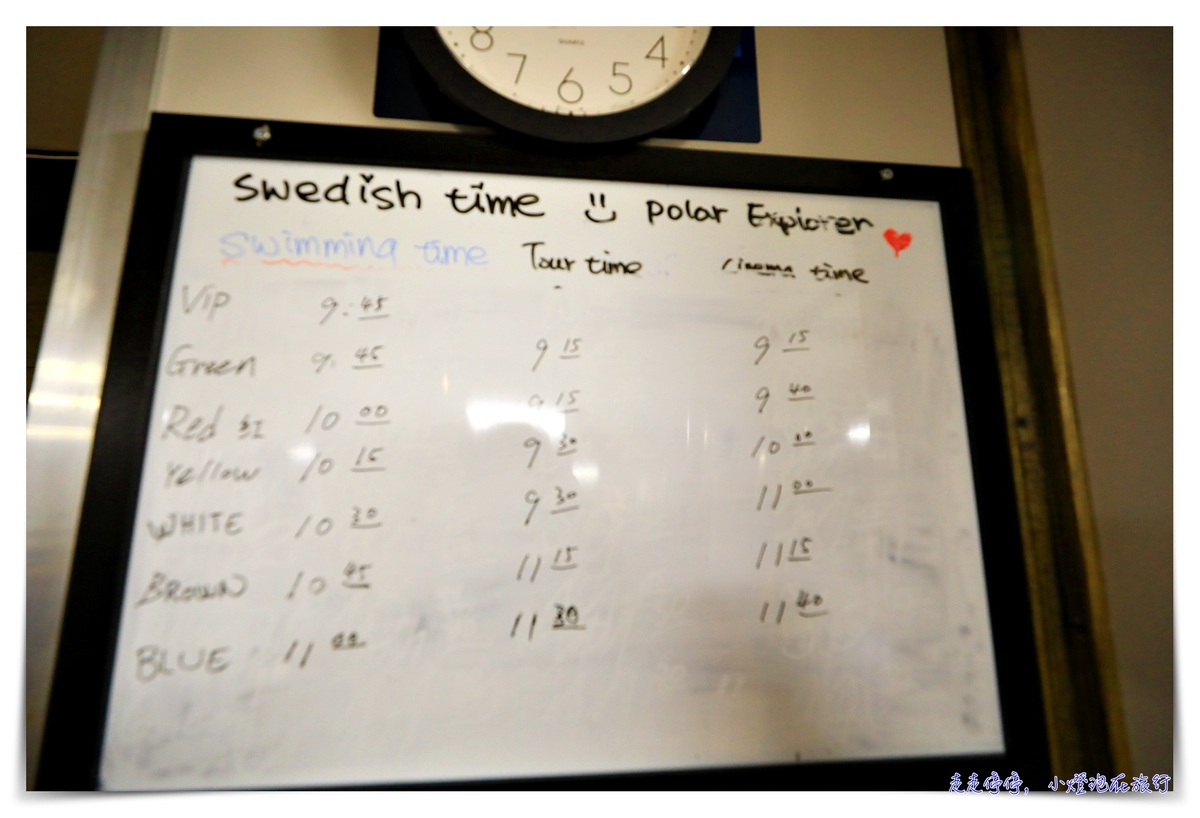 8 7 6 5 4
QUARTZ
Swedish time Polar Explorer
Swimming time Tour time time
Vip 9:45
Green 9:45 9 15 9 15
Red 紅 10 00 9 15 9 40
Yellow 10 15 9 30 10
WHITE 10 30 9 30 11 00
BROWN 10 45 11 15 11 15
BLUE 11 00 11 30 11 40
走走停停，小燈泡在旅行